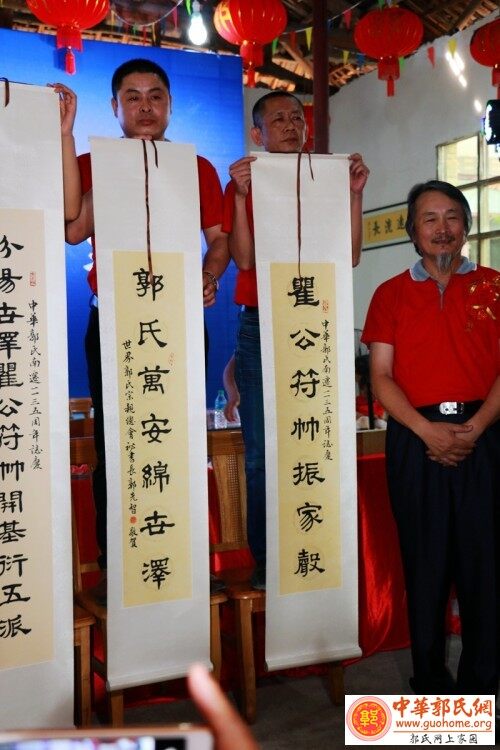 遠流長
中華郭氏南遷一二三五周年誌慶
瞿公符帥振家聲
郭氏萬安綿世澤
世界郭氏宗親總會秘書長郭先智 敬賀
中華郭氏南遷一二三五周年誌慶
汾陽世澤瞿公符帥開基衍五派
中華郭氏網
www.guohome.org
郭氏网上家园